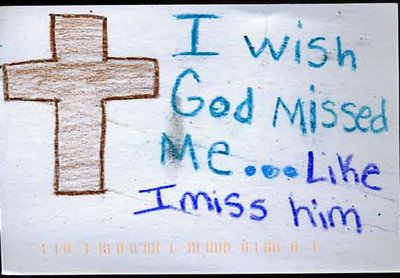 I wish
God missed
Me...Like
I miss him